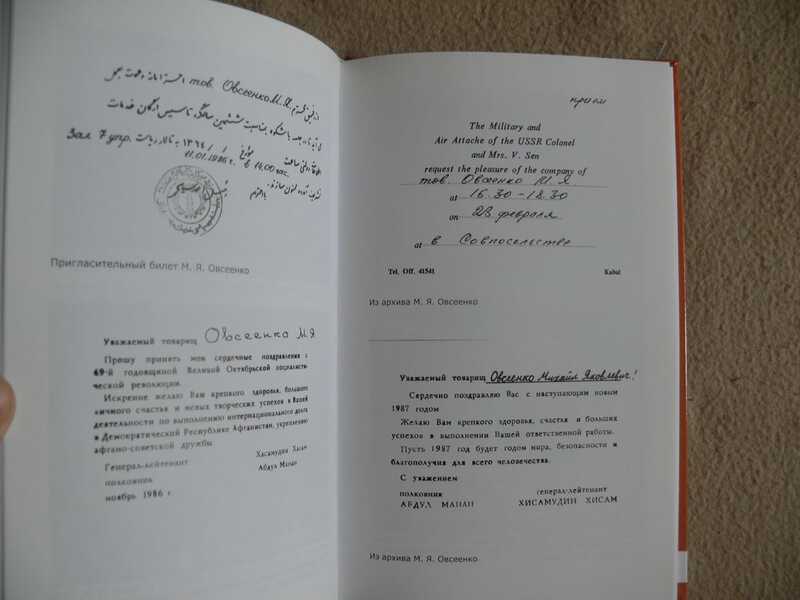 тов. Овсеенко М.Я.
Зал 7 упр.
11.01.1986 г. в 14.00 час.
Пригласительный билет М. Я. Овсеенко
Уважаемый товарищ Овсеенко МЯ
Прошу принять мои сердечные поздравления с
69-й годовщиной Великой Октябрьской социалисти-
ческой революции.
Искренне желаю Вам крепкого здоровья, большого
личного счастья и новых творческих успехов в Вашей
деятельности по выполнению интернационального долга
в Демократической Республике Афганистан, укреплению
афгано-советской дружбы
Генерал-лейтенант Хисамудин Хисам
полковник Абдул Манан
ноябрь 1986 г.
прием
The Military and
Air Attache of the USSR Colonel
and Mrs. V. Sen
request the pleasure of the company of
тов. Овсеенко М. Я.
at 16.30-18.30
on 23 февраля
at в Совпосольстве
Tel. Off. 41541 Kabul
Из архива М. Я. Овсеенко
Уважаемый товарищ Овсеенко Михаил Яковлевич!
Сердечно поздравляю Вас с наступающим новым
1987 годом
Желаю Вам крепкого здоровья, счастья и больших
успехов в выполнении Вашей ответственной работы.
Пусть 1987 год будет годом мира, безопасности и
благополучия для всего человечества.
С уважением
полковник генерал-лейтенант
АБДУЛ МАНАН ХИСАМУДИН ХИСАМ
Из архива М. Я. Овсеенко